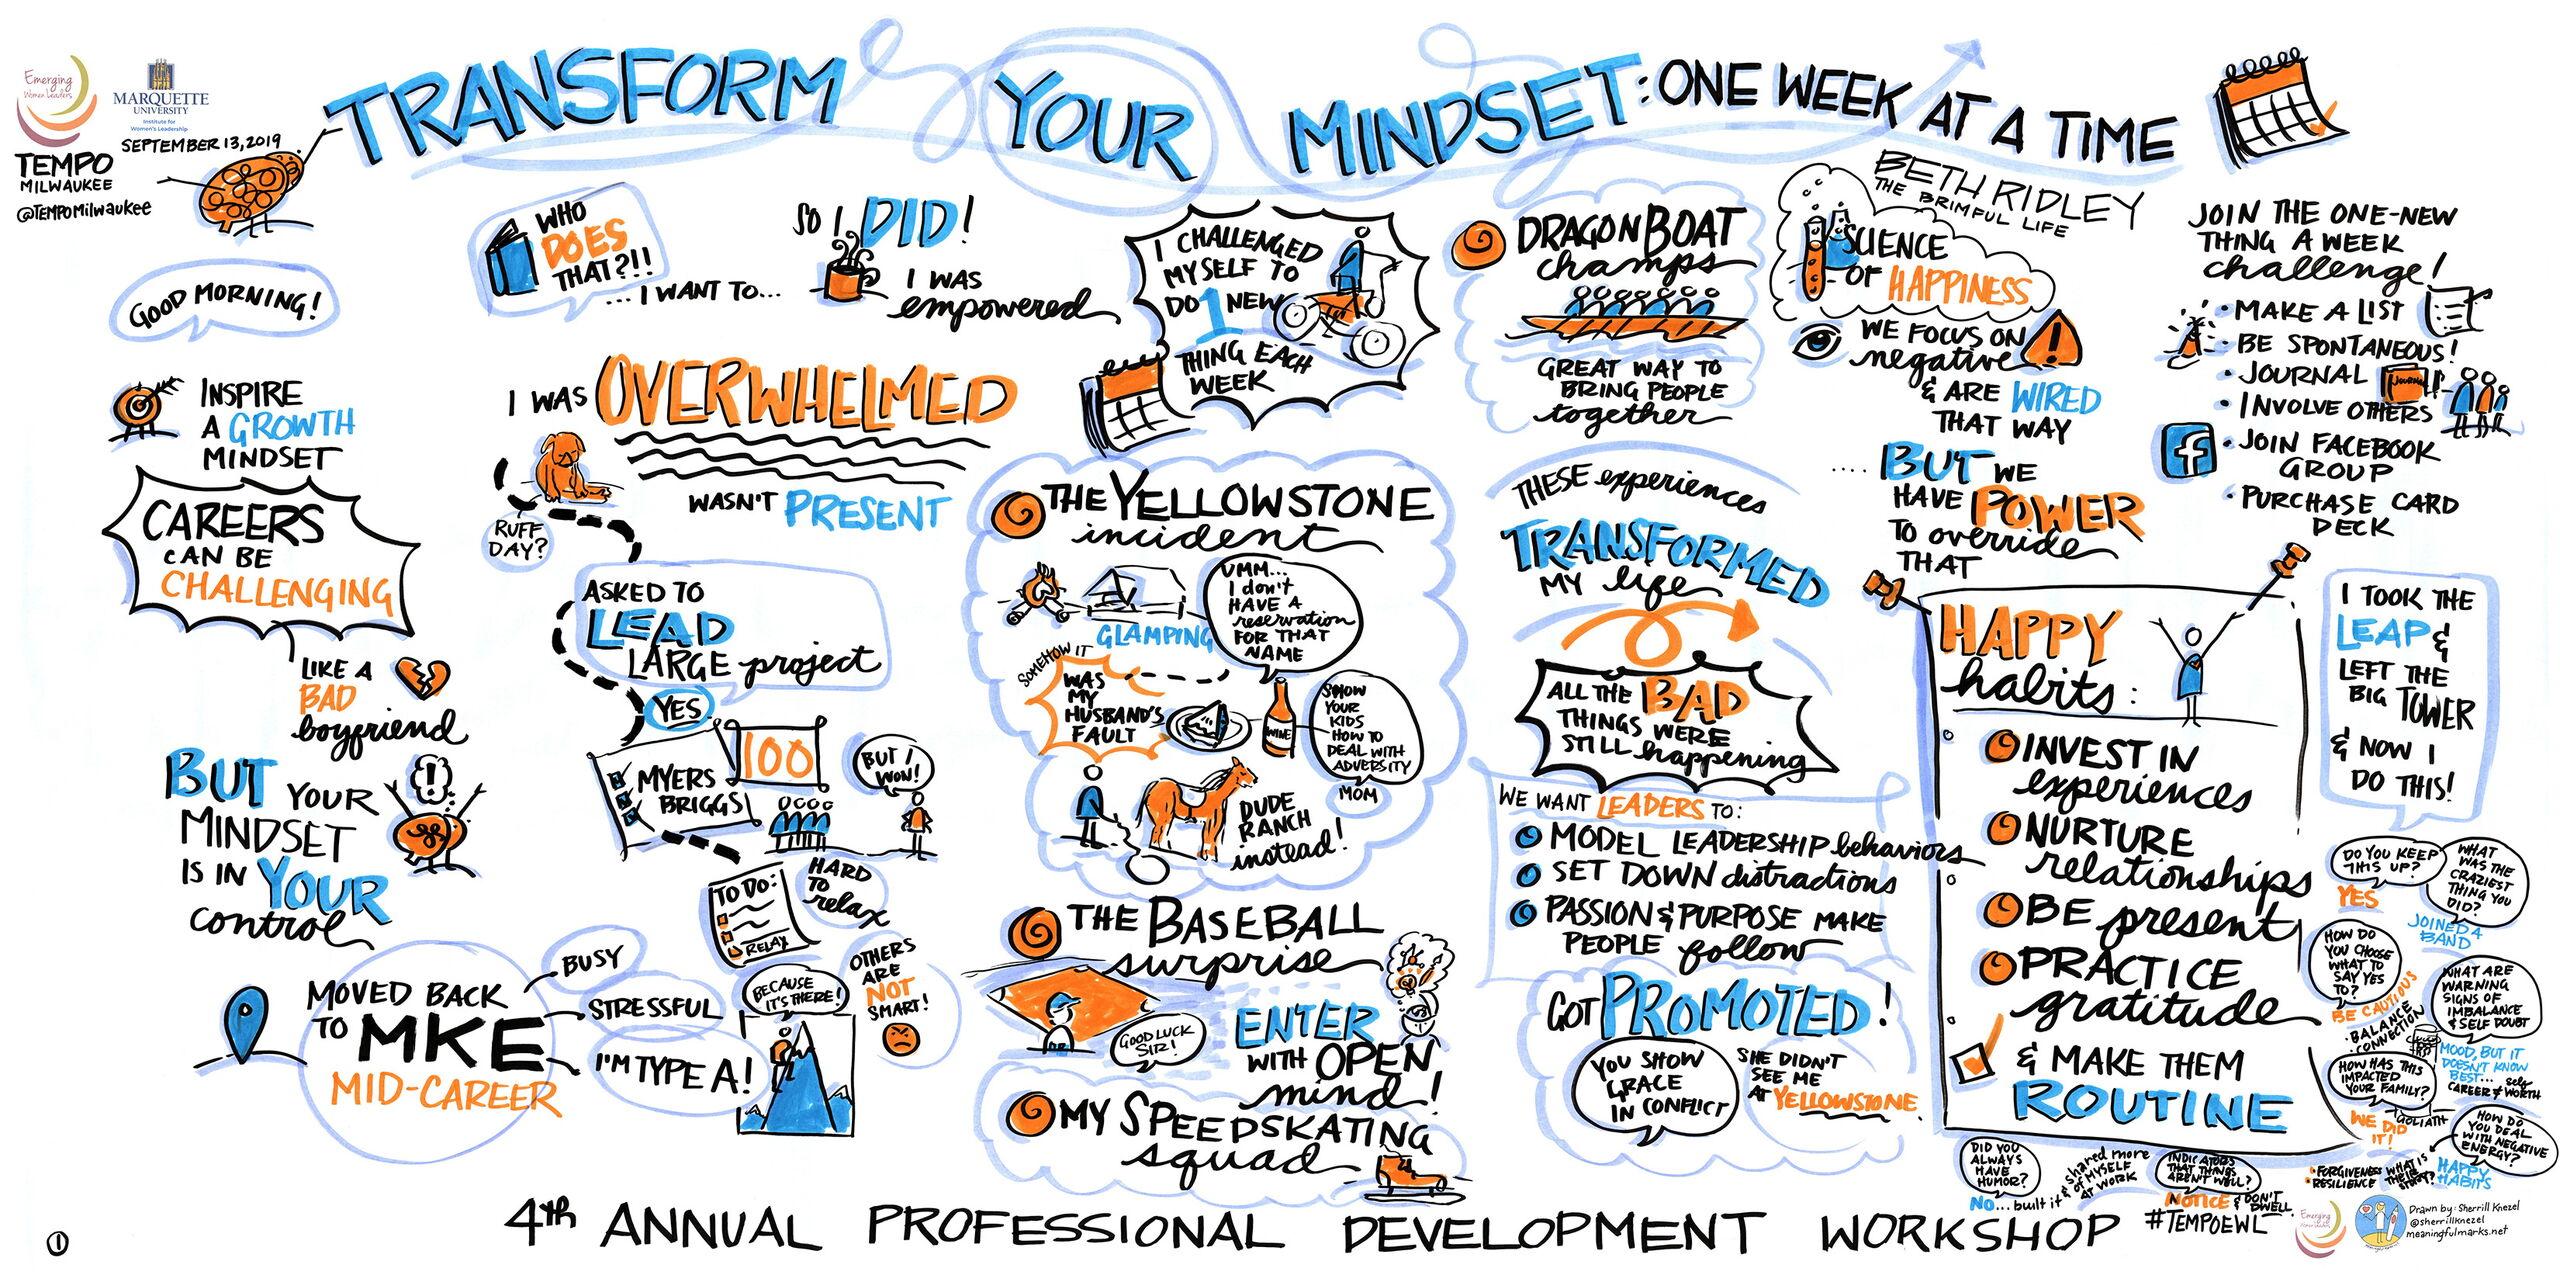 Emerging
Women Leaders
MARQUETTE
UNIVERSITY
Institute for
Women's Leadership
SEPTEMBER 13, 2019
TEMPO
MILWAUKEE
@TEMPOMilwaukee
TRANSFORM YOUR MINDSET: ONE WEEK AT A TIME
BETH RIDLEY
THE BRIMFUL LIFE
GOOD MORNING!
INSPIRE
A GROWTH
MINDSET
CAREERS
CAN BE
CHALLENGING
LIKE A
BAD
boyfriend
BUT YOUR
MINDSET
IS IN YOUR
control
MOVED BACK
TO MKE
MID-CAREER
BUSY
STRESSFUL
I'M TYPE A!
WHO
DOES
THAT?!!
...I WANT TO...
SO I DID!
I WAS
empowered
I WAS OVERWHELMED
WASN'T PRESENT
RUFF
DAY?
ASKED TO
LEAD
LARGE project
YES
MYERS
BRIGGS
100
BUT I
WON!
TO DO:
RELAX
HARD
TO
relax
BECAUSE
IT'S THERE!
OTHERS
ARE
NOT
SMART!
I CHALLENGED
MYSELF TO
DO 1 NEW
THING EACH
WEEK
THE YELLOWSTONE
incident
GLAMPING
UMM...
I don't
HAVE A
reservation
FOR THAT
NAME
SOMEHOW IT
WAS
MY
HUSBAND'S
FAULT
WINE
SHOW
YOUR
KIDS
HOW TO
DEAL WITH
ADVERSITY
MOM
DUDE
RANCH
instead!
THE BASEBALL
surprise
GOOD LUCK
SIR!
ENTER
WITH OPEN
mind!
MY SPEEDSKATING
squad
DRAGON BOAT
champs
GREAT WAY TO
BRING PEOPLE
together
THESE experiences
TRANSFORMED
MY life
ALL THE BAD
THINGS WERE
STILL happening
WE WANT LEADERS TO:
MODEL LEADERSHIP behaviors
SET DOWN distractions
PASSION & PURPOSE MAKE
PEOPLE follow
GOT PROMOTED!
YOU SHOW
GRACE
IN CONFLICT
SHE DIDN'T
SEE ME
AT YELLOWSTONE
SCIENCE
OF HAPPINESS
WE FOCUS ON
negative
& ARE WIRED
THAT WAY
....BUT WE
HAVE POWER
TO override
THAT
HAPPY
habits:
INVEST IN
experiences
NURTURE
relationships
BE present
PRACTICE
gratitude
& MAKE THEM
ROUTINE
JOIN THE ONE-NEW
THING A WEEK
challenge!
• MAKE A LIST
• BE SPONTANEOUS!
• JOURNAL
JOURNAL
• INVOLVE OTHERS
• JOIN FACEBOOK
GROUP
• PURCHASE CARD
DECK
I TOOK THE
LEAP &
LEFT THE
BIG TOWER
& NOW I
DO THIS!
DO YOU KEEP
THIS UP?
YES
WHAT
WAS THE
CRAZIEST
THING YOU
DID?
JOINED A
BAND
HOW DO
YOU CHOOSE
WHAT TO
SAY YES
TO?
BE CAUTIOUS
• BALANCE
• CONNECTION
WHAT ARE
WARNING
SIGNS OF
IMBALANCE
& SELF DOUBT
MOOD, BUT IT
DOESN'T KNOW
BEST... self
CAREER & WORTH
HOW HAS THIS
IMPACTED
YOUR FAMILY?
WE DID
IT!
GOLIATH
HOW DO
YOU DEAL
WITH NEGATIVE
ENERGY?
HAPPY
HABITS
WHAT IS
THEIR
STORY?
• FORGIVENESS
• RESILIENCE
DID YOU
ALWAYS
HAVE
HUMOR?
NO... built it
& shared more
OF MYSELF
AT WORK
INDICATORS
THAT THINGS
AREN'T WELL?
NOTICE & DON'T
DWELL
4th ANNUAL PROFESSIONAL DEVELOPMENT WORKSHOP
#TEMPOEWL
Emerging
Women Leaders
Drawn by: Sherrill Knezel
@sherrillknezel
meaningfulmarks.net
1